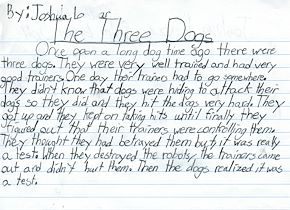 By: Joshua, 6
The Three Dogs
Once opon a long dog time ago there were
three dogs. They were very well trained and had very
good trainers. One day their trainers had to go somewhere.
They didn't know that dogs were hiding to attack their
dogs so they did and they hit the dogs very hard. They
got up and they kept on taking hits until finally they
figured out that their trainers were contolling them.
They thought they had betrayed them but it was really
a test. When they destroyed the robots, the trainers came
out and didn't hurt them. Then the dogs realized it was
a test.